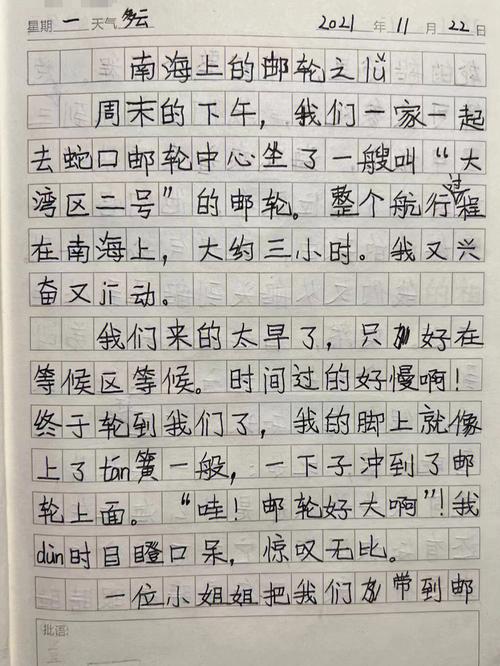 星期一 天气多云 2021年11月22日
南海上的邮轮之lǚ
周末的下午，我们一家一起
去蛇口邮轮中心坐了一艘叫“大
湾区二号”的邮轮。整个航行过程
在南海上，大约三小时。我又兴
奋又jī动。
我们来的太早了，只好在
等候区等候。时间过的好慢啊！
终于轮到我们了，我的脚上就像
上了tán簧一般，一下子冲到了邮
轮上面。“哇！邮轮好大啊”！我
dùn时目瞪口呆，惊叹无比。
一位小姐姐把我们带到邮
批语: